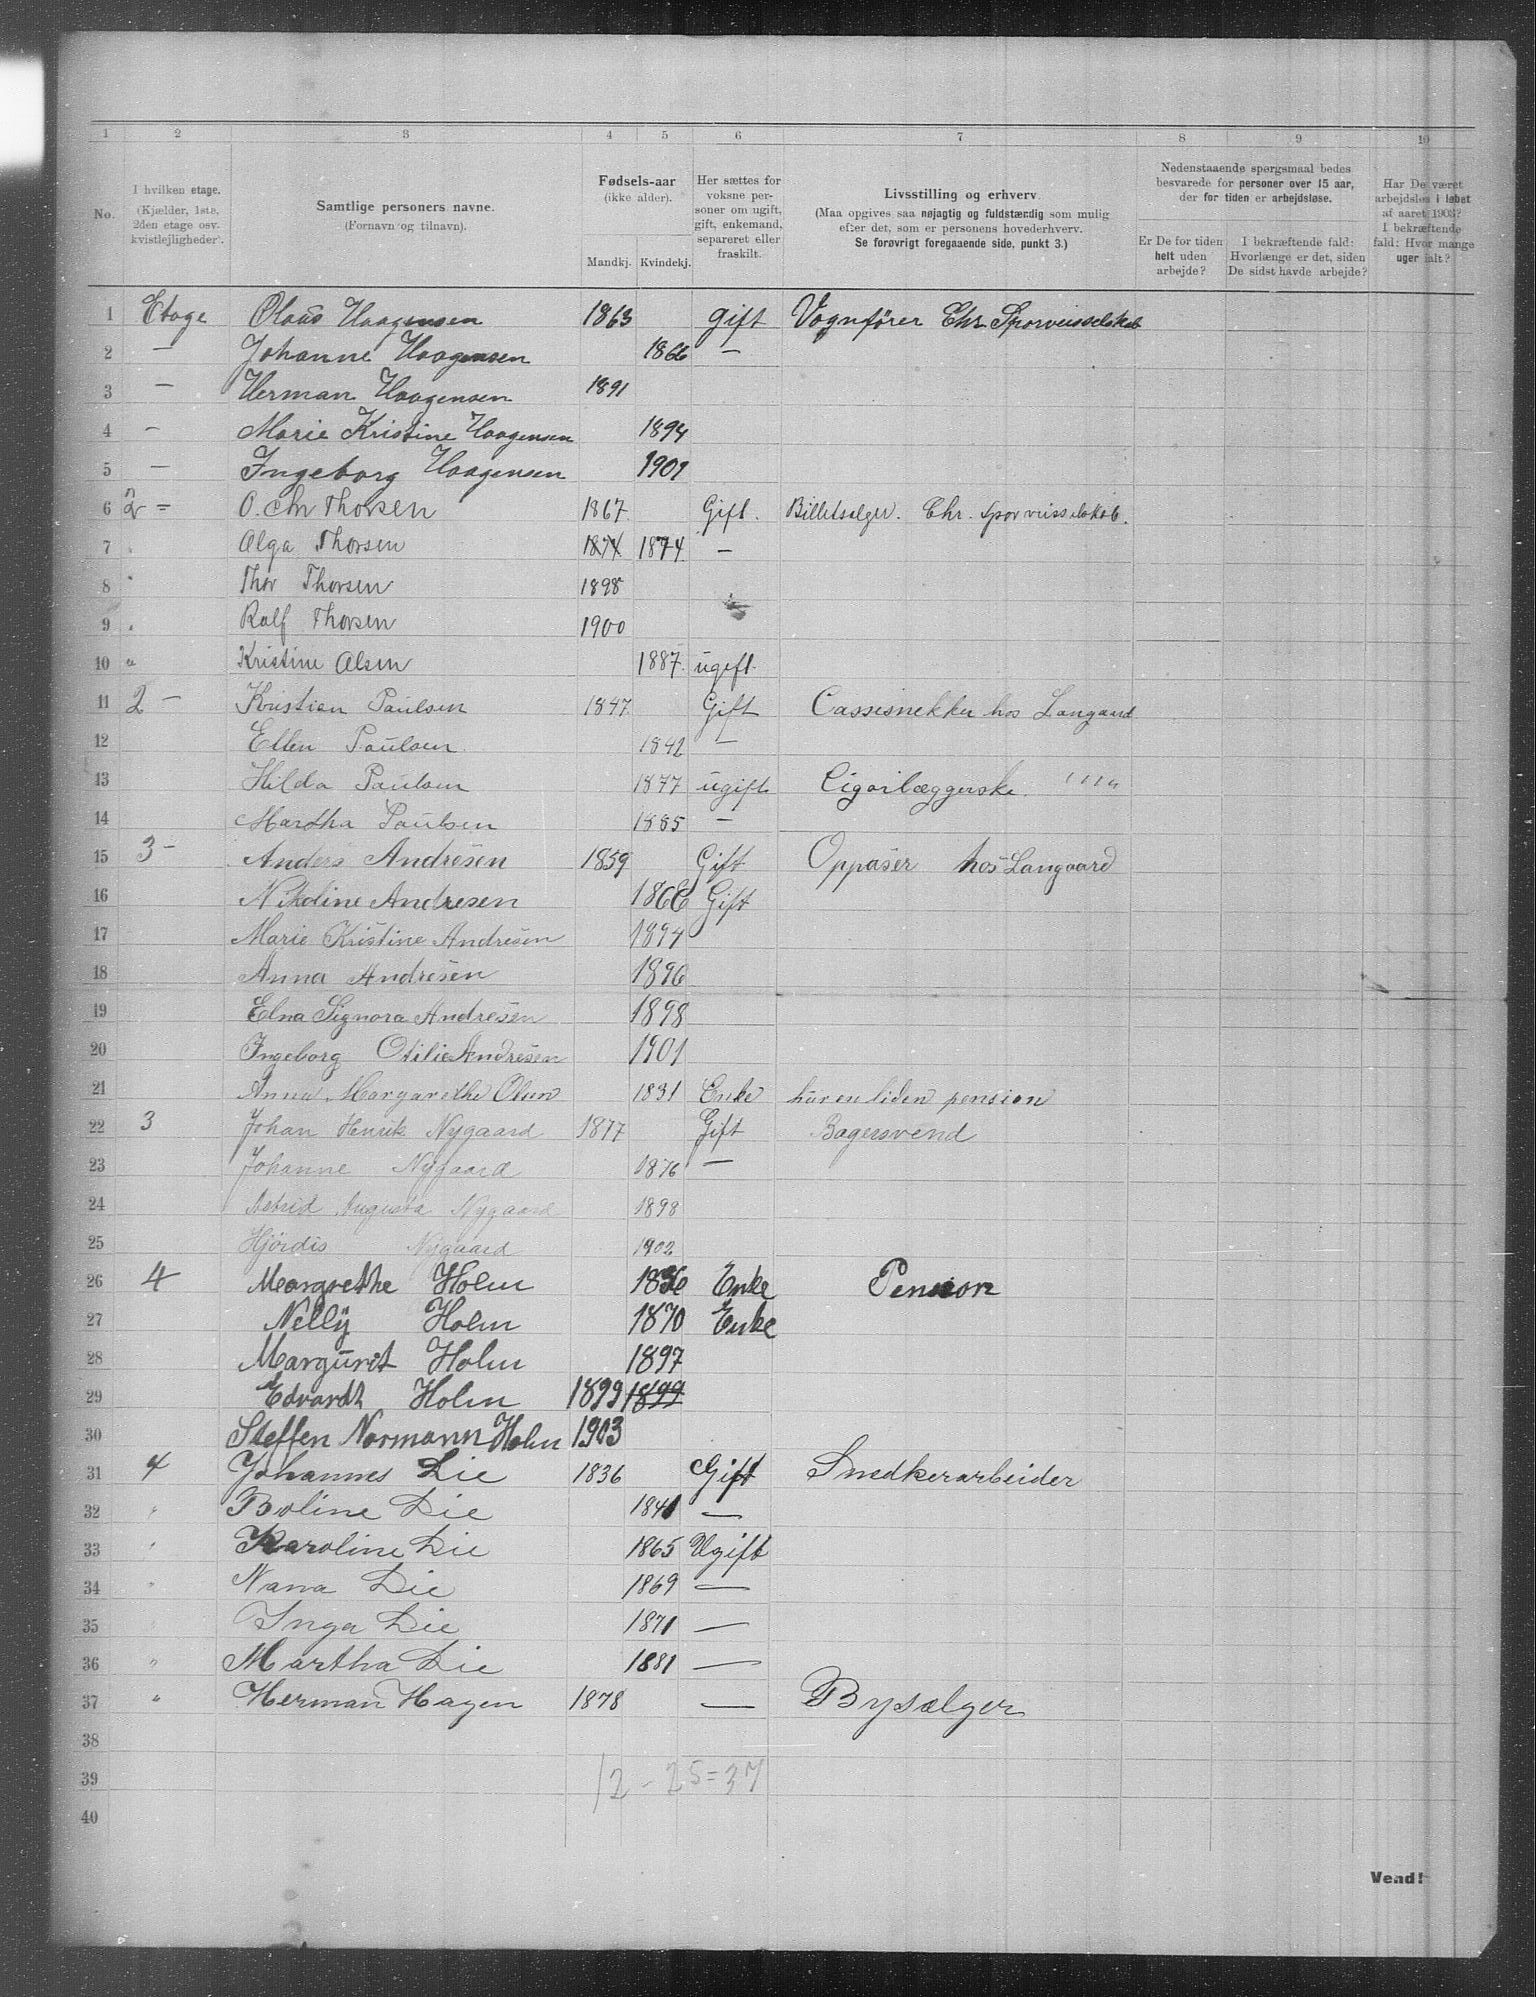 1 2 3 4 5 6 7 8 9 10
No.
I hvilken etage.
(Kjælder, 1ste,
2den etage osv.
kvistlejligheder).
Samtlige personers navne.
(Fornavn og tilnavn).
Fødsels-aar
(ikke alder).
Mandkj. Kvindekj.
Her sættes for
voksne per-
soner om ugift,
gift, enkemand,
separeret eller
fraskilt.
Livsstilling og erhverv
(Maa opgives saa nøjagtig og fuldstændig som mulig
efter det, som er personens hovederhverv.
Se forøvrigt foregaaende side, punkt 3.)
Nedenstaaende spørgsmaal bedes
besvarede for personer over 15 aar,
der for tiden er arbejdsløse.
Er De for tiden
helt uden
arbejde?
I bekræftende fald:
Hvorlænge er det, siden
De sidst havde arbejde?
Har De været
arbejdsløs i løbet
af aaret 1903?
I bekræftende
fald: Hvor mange
uger ialt?
1 Etage Olaus Haagensen 1863 gift Vognfører Chr. Sporveisselskab
2 — Johanne Haagensen 1866 —
3 — Herman Haagensen 1891
4 — Marie Kristine Haagensen 1894
5 — Ingeborg Haagensen 1901
6 2 = O. Chr Thorsen 1867 Gift. Billetsælger. Chr. Sporveisselskab.
7 " Olga Thorsen 1874 1874. —
8 " Thor Thorsen 1898
9 " Ralf Thorsen 1900
10 " Kristine Olsen 1887. ugift.
11 2 — Kristian Paulsen 1847 Gift Cassesnekker hos Langaard
12 Ellen Paulsen 1842 —
13 Hilda Paulsen 1877 ugift Cigarilæggerske. " "
14 Martha Paulsen 1885 —
15 3 — Anders Andresen 1859 Gift Oppaser hos Langaard
16 Nikoline Andresen 1866 Gift
17 Marie Kristine Andresen 1894
18 Anna Andresen 1896
19 Elna Signora Andresen 1898
20 Ingeborg Otilie Andresen 1901
21 Anna Margarethe Olsen 1831 Enke har en liden pension
22 3 Johan Henrik Nygaard 1877 Gift Bagersvend
23 Johanne Nygaard 1876 —
24 Astrid Augusta Nygaard 1898
25 Hjördis Nygaard 1902
26 4 Margrethe Holm 1836 Enke Pension
27 Nelly Holm 1870 Enke
28 Margurit Holm 1897
29 Edvardt Holm 1899 1899
30 Steffen Normann Holm 1903
31 4 Johannes Lie 1836 Gift Snedkerarbeider
32 " Boline Lie 1841 —
33 " Karoline Lie 1865 Ugift
34 " Nana Lie 1869 —
35 " Inga Lie 1871 —
36 " Martha Lie 1881 —
37 " Herman Hagen 1878 — Bysælger
38
39 12 - 25 = 37
40
Vend!